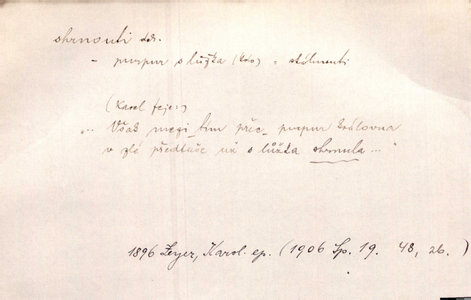 shrnouti dok.
- purpur s lůžka (kdo) = stáhnouti
(Karel feje:)
„Však mezi tím přec purpur královna
v zlé předtuše už s lůžka shrnula ..."
1896 Zeyer, Karol. ep. (1906 Sp. 19. 48, 26.)